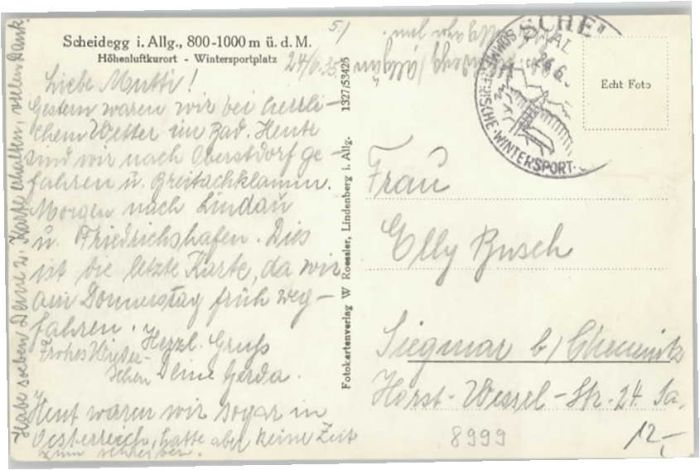 Scheidegg i. Allg., 800-1000 m ü. d. M.
Höhenluftkurort - Wintersportplatz
24/6.35
Liebe Mutti!
Gestern waren wir bei herrli-
chem Wetter im Bad. Heute
sind wir nach Oberstdorf ge-
fahren u. Breitachklamm.
Morgen nach Lindau
u. Friedrichshafen. Dies
ist die letzte Karte, da wir
am Donnerstag früh weg-
fahren. Herzl. Gruß
Frohes Wieder-
sehen Deine Gerda.
Heut waren wir sogar in
Oesterreich, hatte aber keine Zeit
zum schreiben.
Habe soeben Deine 2. Karte erhalten, vielen Dank
Fotokartenverlag W Roessler, Lindenberg i. Allg. 1327/53425
5/
SCHE
26.6.
WINTERSPORT
Echt Foto
Frau
Elly Busch
Siegmar b/ Chemnitz
Horst-Wessel-Str. 24 Sa.
8999
12,-